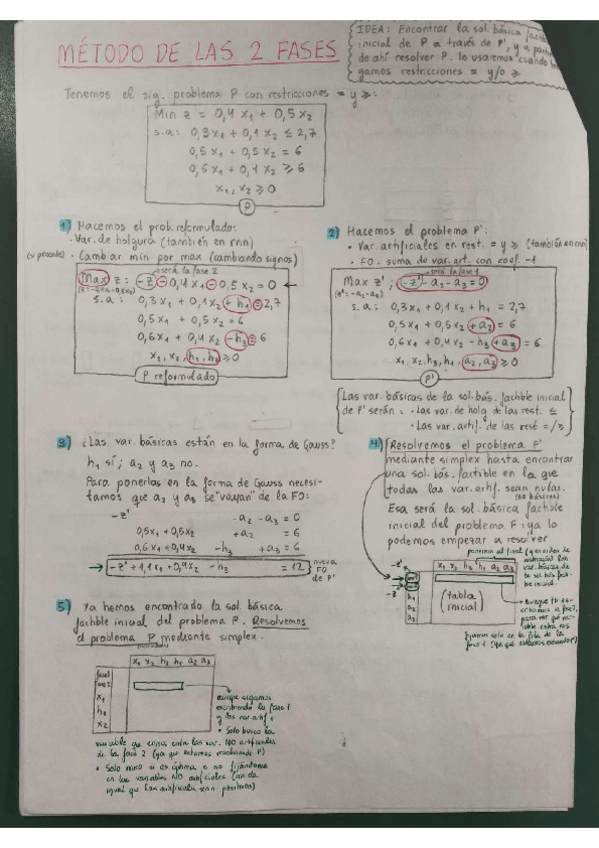 MÉTODO DE LAS 2 FASES
IDEA: Encontrar la sol. básica factible
inicial de P a través de P', y a partir
de ahí resolver P. lo usaremos cuando
gamos restricciones = y/o ≥
Tenemos el sig. problema P con restricciones = y ≥:
Min z = 0,4 x₁ + 0,5 x₂
s.a: 0,3 x₁ + 0,1 x₂ ≤ 2,7
0,5 x₁ + 0,5 x₂ = 6
0,6 x₁ + 0,4 x₂ ≥ 6
x₁, x₂ ≥ 0
P
1) Hacemos el prob. reformulado:
· Var. de holgura (también en fnn)
(si procede) · Cambiar min por max (cambiando signos)
será la fase 2
Max z: -z - 0,4 x₁ - 0,5 x₂ = 0 ←
(z = -0,4x₁ - 0,5x₂)
s.a: 0,3 x₁ + 0,1 x₂ + h₁ = 2,7
0,5 x₁ + 0,5 x₂ = 6
0,6 x₁ + 0,4 x₂ - h₃ = 6
x₁, x₂, h₁, h₃ ≥ 0
P reformulado
2) Hacemos el problema P':
· Var. artificiales en rest. = y ≥ (también en rnn)
· FO: suma de var. art. con coef. -1
será la fase 1
Max z': -z' - a₂ - a₃ = 0
(z' = -a₂ - a₃)
s.a: 0,3 x₁ + 0,1 x₂ + h₁ = 2,7
0,5 x₁ + 0,5 x₂ + a₂ = 6
0,6 x₁ + 0,4 x₂ - h₃ + a₃ = 6
x₁, x₂, h₃, h₁, a₂, a₃ ≥ 0
P'
Las var. básicas de la sol. bás. factible inicial
de P' serán: · Las var. de holg de las rest. ≤
· Las var. artif. de las rest =/≥
3) ¿Las var. básicas están en la forma de Gauss?
h₁ sí; a₂ y a₃ no.
Para ponerlas en la forma de Gauss necesi-
tamos que a₂ y a₃ se "vayan" de la FO:
-z' - a₂ - a₃ = 0
0,5x₁ + 0,5x₂ + a₂ = 6
0,6 x₁ + 0,4x₂ - h₃ + a₃ = 6
→ -z' + 1,1 x₁ + 0,9x₂ - h₃ = 12 nueva FO de P'
4) Resolvemos el problema P'
mediante simplex hasta encontrar
una sol. bás. factible en la que
todas las var. artif. sean nulas.
(no básicas)
Esa será la sol. básica factible
inicial del problema P: ya lo
podemos empezar a resolver
x₁ x₂ h₃ h₁ a₂ a₃
-z'
-z
h₁
a₂
a₃
(tabla
inicial)
5) Ya hemos encontrado la sol. básica
factible inicial del problema P. Resolvemos
el problema P mediante simplex.
x₁ x₂ h₃ h₁ a₂ a₃
fase 1
fase 2
x₁
h₁
x₂
aunque sigamos
escribiendo la fase 1
y las var artif.
· Solo busco la
variable que entra entre las var. NO artificiales
de la fase 2 (ya que estamos resolviendo P)
· Solo miro si es óptima o no fijándome
en las variables NO artificiales (me da
igual que las artificiales sean positivas)